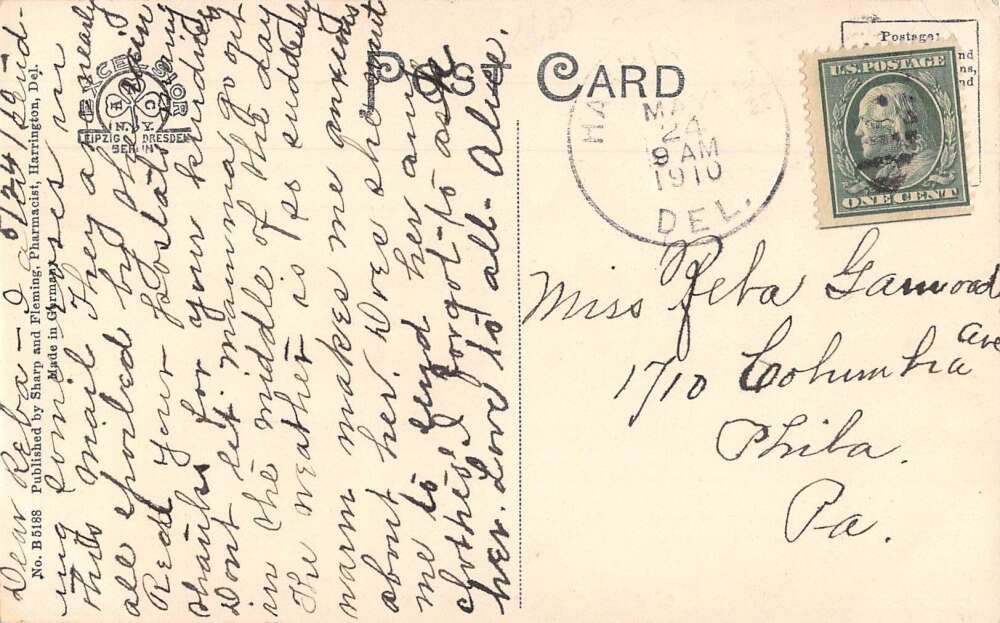 Dear Reba - I am send-
ing some roses in
this mail They are nearly
all spoiled by the rain
Recd your postals many
thanks for your kindness
Dont let mamma go out
in the middle of the day
The weather is so suddenly
warm makes me anxious
about her. Does she want
me to send her any
clothes, I forgot to ask
her. Love to all - Alice.
5/24/10
No. B5188 Published by Sharp and Fleming, Pharmacist, Harrington, Del.
Made in Germany
EXCELSIOR
A C
N.Y.
LEIPZIG DRESDEN
BERLIN
POST CARD
HA
MA
24
9 AM
1910
DEL.
Postage:
U.S. POSTAGE
ONE CENT
Miss Reba Garwood
1710 Columbia ave
Phila.
Pa.